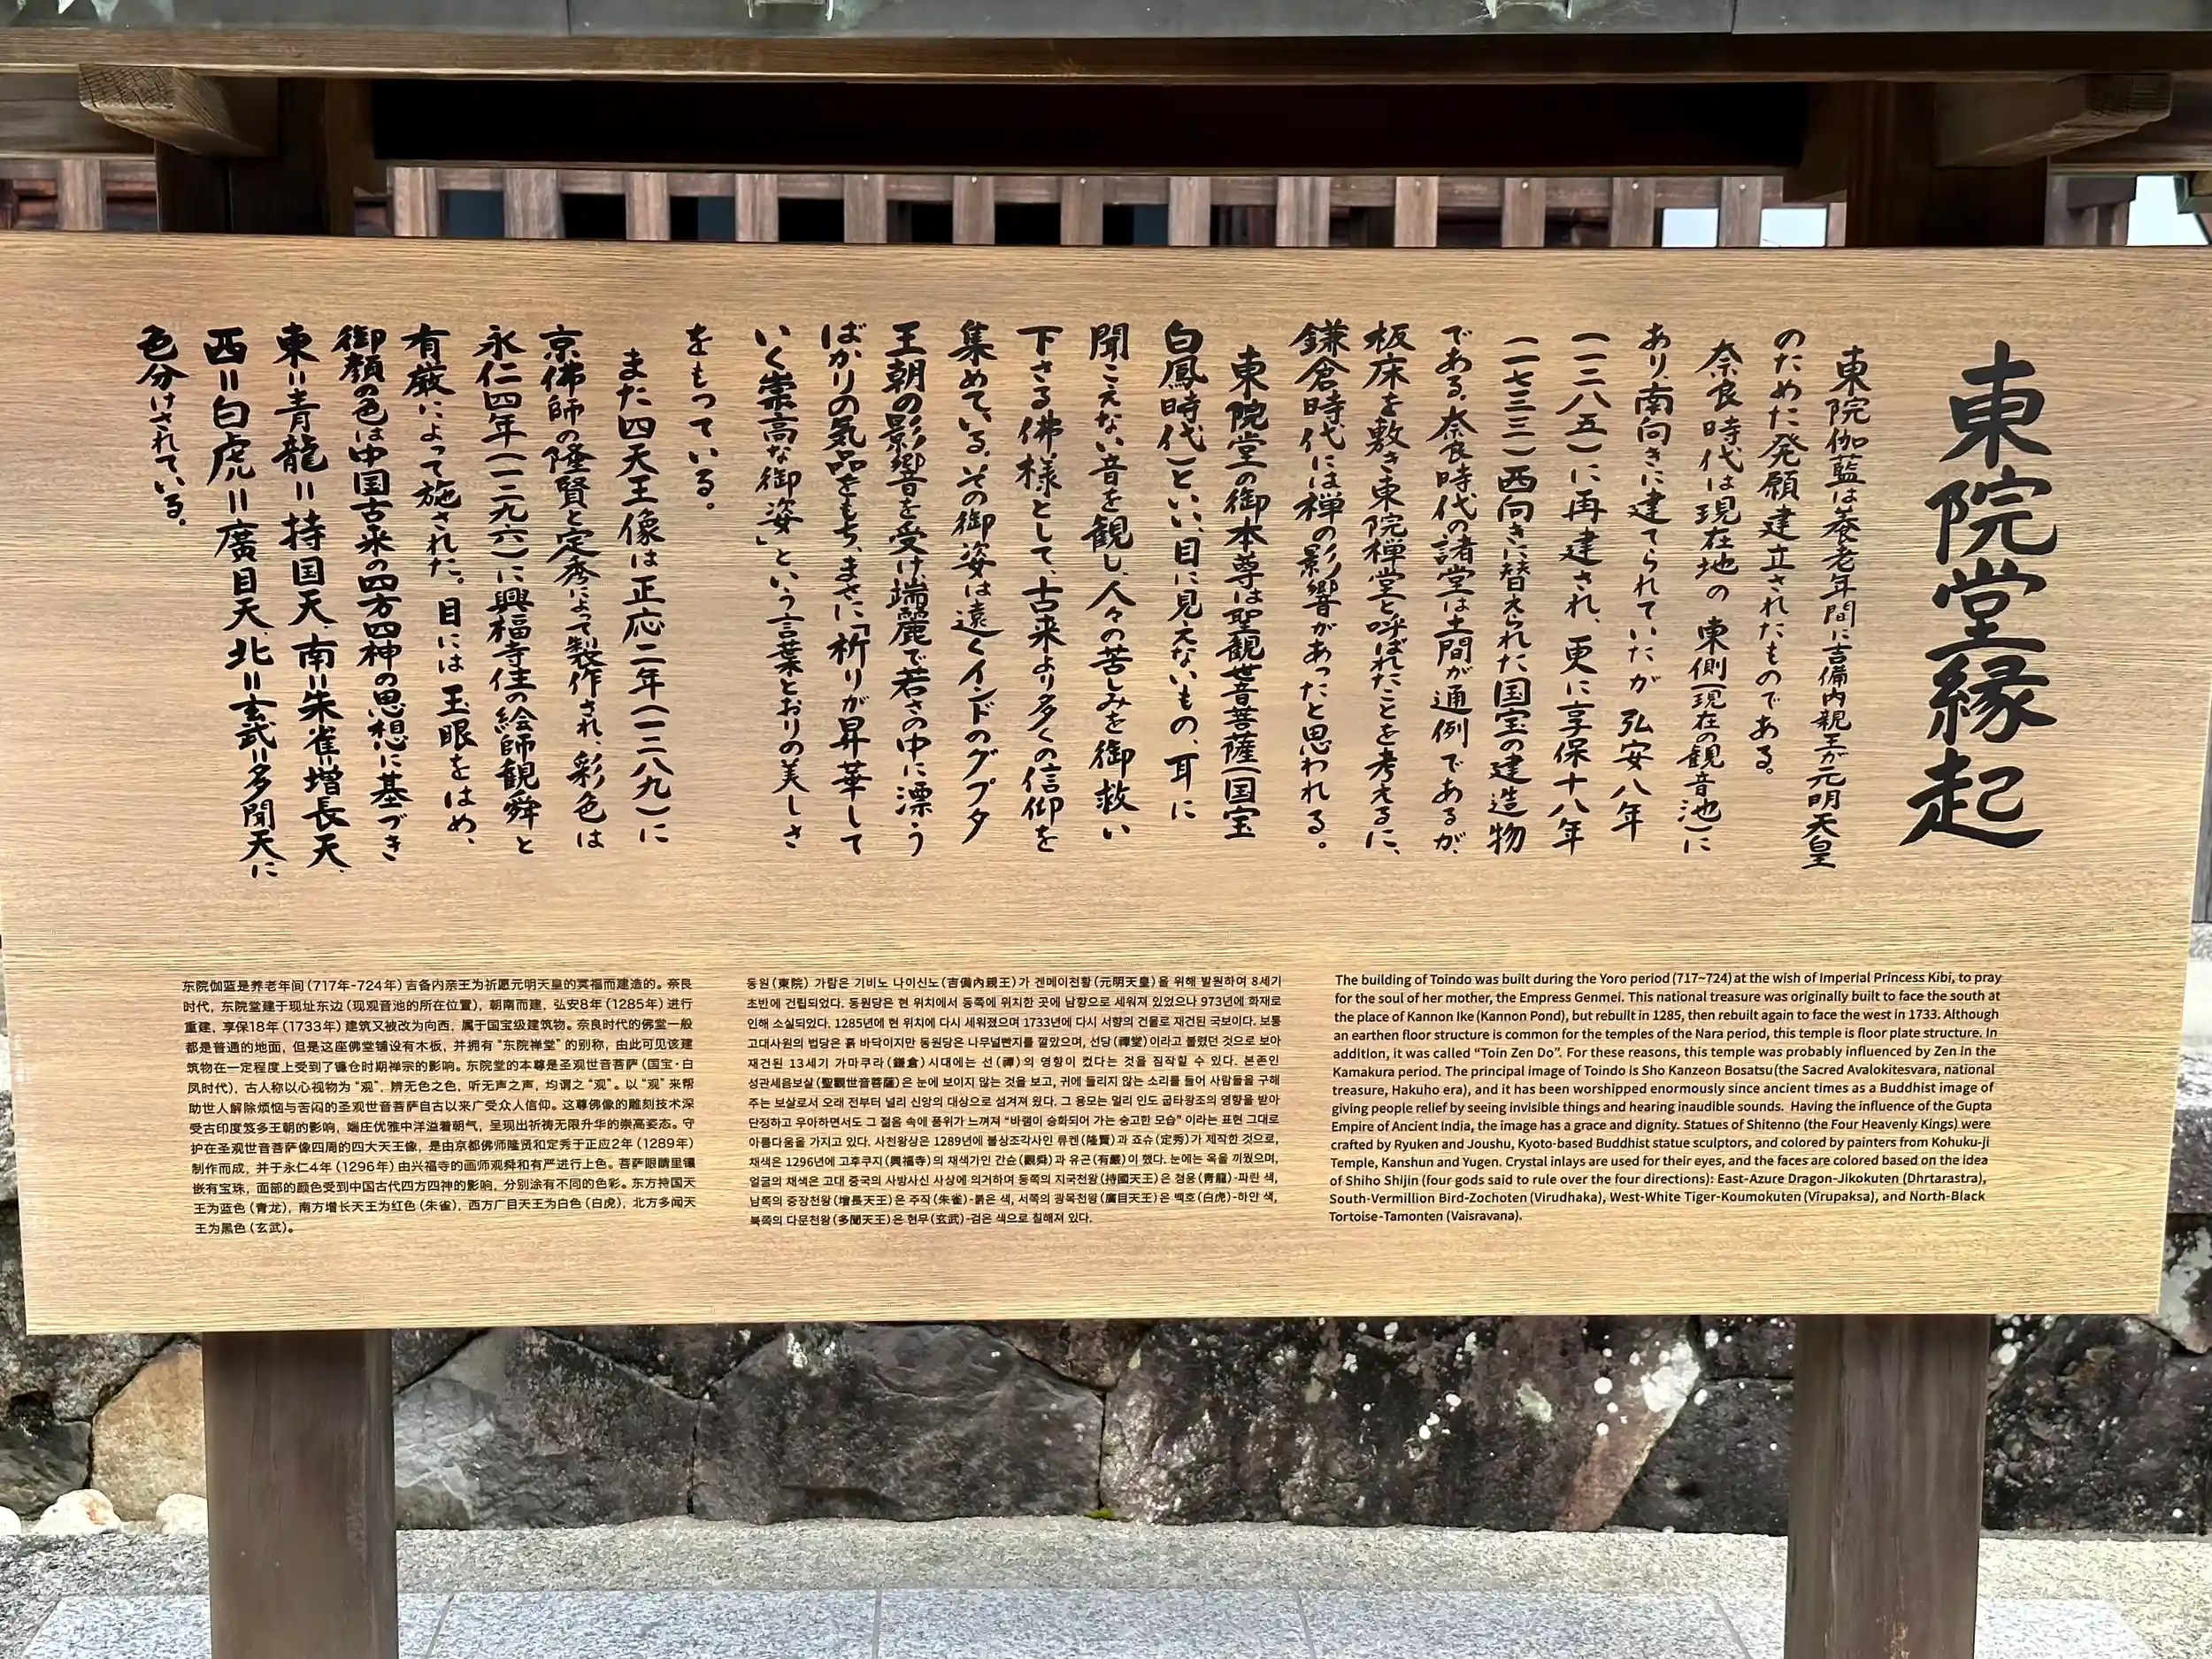 東院堂縁起
東院伽藍は養老年間に吉備内親王が元明天皇
のために発願建立されたものである。
奈良時代は現在地の東側(現在の観音池)に
あり、南向きに建てられていたが弘安八年
(一二八五)に再建され、更に享保十八年
(一七三三)西向きに替えられた国宝の建造物
である。奈良時代の諸堂は土間が通例であるが、
板床を敷き東院禅堂と呼ばれたことを考えるに、
鎌倉時代には禅の影響があったと思われる。
東院堂の御本尊は聖観世音菩薩(国宝
白鳳時代)といい、目に見えないもの、耳に
聞こえない音を観し、人々の苦しみを御救い
下さる佛様として、古来より多くの信仰を
集めている。その御姿は遠くインドのグプタ
王朝の影響を受け、端麗で若さの中に漂う
ばかりの気品をもち、まさに「祈りが昇華して
いく崇高な御姿」という言葉とおりの美しさ
をもっている。
また四天王像は正応二年(一二八九)に
京佛師の隆賢と定秀によって製作され、彩色は
永仁四年(一二九六)に興福寺住の絵師観舜と
有厳によって施された。目には玉眼をはめ、
御顔の色は中国古来の四方四神の思想に基づき
東=青龍=持国天、南=朱雀=増長天、
西=白虎=廣目天、北=玄武=多聞天に
色分けされている。
东院伽蓝是养老年间(717年-724年)吉备内亲王为祈愿元明天皇的冥福而建造的。奈良
时代,东院堂建于现址东边(现观音池的所在位置),朝南而建,弘安8年(1285年)进行
重建,享保18年(1733年)建筑又被改为向西,属于国宝级建筑物。奈良时代的佛堂一般
都是普通的地面,但是这座佛堂铺设有木板,并拥有“东院禅堂”的别称,由此可见该建
筑物在一定程度上受到了镰仓时期禅宗的影响。东院堂的本尊是圣观世音菩萨(国宝·白
凤时代),古人称以心视物为“观”,辨无色之色,听无声之声,均谓之“观”。以“观”来帮
助世人解除烦恼与苦闷的圣观世音菩萨自古以来广受众人信仰。这尊佛像的雕刻技术深
受古印度笈多王朝的影响,端庄优雅中洋溢着朝气,呈现出祈祷无限升华的崇高姿态。守
护在圣观世音菩萨像四周的四大天王像,是由京都佛师隆贤和定秀于正应2年(1289年)
制作而成,并于永仁4年(1296年)由兴福寺的画师观舜和有严进行上色。菩萨眼睛里镶
嵌有宝珠,面部的颜色受到中国古代四方四神的影响,分别涂有不同的色彩。东方持国天
王为蓝色(青龙),南方增长天王为红色(朱雀),西方广目天王为白色(白虎),北方多闻天
王为黑色(玄武)。
동원(東院) 가람은 기비노 나이신노(吉備內親王)가 겐메이천황(元明天皇)을 위해 발원하여 8세기
초반에 건립되었다. 동원당은 현 위치에서 동쪽에 위치한 곳에 남향으로 세워져 있었으나 973년에 화재로
인해 소실되었다. 1285년에 현 위치에 다시 세워졌으며 1733년에 다시 서향의 건물로 재건된 국보이다. 보통
고대사원의 법당은 흙 바닥이지만 동원당은 나무널빤지를 깔았으며, 선당(禪堂)이라고 불렸던 것으로 보아
재건된 13세기 가마쿠라(鎌倉)시대에는 선(禪)의 영향이 컸다는 것을 짐작할 수 있다. 본존인
성관세음보살(聖觀世音菩薩)은 눈에 보이지 않는 것을 보고, 귀에 들리지 않는 소리를 들어 사람들을 구해
주는 보살로서 오래 전부터 널리 신앙의 대상으로 섬겨져 왔다. 그 용모는 멀리 인도 굽타왕조의 영향을 받아
단정하고 우아하면서도 그 젊음 속에 품위가 느껴져 “바램이 승화되어 가는 숭고한 모습” 이라는 표현 그대로
아름다움을 가지고 있다. 사천왕상은 1289년에 불상조각사인 류켄(隆賢)과 죠슈(定秀)가 제작한 것으로,
채색은 1296년에 고후쿠지(興福寺)의 채색가인 간슌(觀舜)과 유곤(有嚴)이 했다. 눈에는 옥을 끼웠으며,
얼굴의 채색은 고대 중국의 사방사신 사상에 의거하여 동쪽의 지국천왕(持國天王)은 청용(靑龍)-파란 색,
남쪽의 증장천왕(增長天王)은 주작(朱雀)-붉은 색, 서쪽의 광목천왕(廣目天王)은 백호(白虎)-하얀 색,
북쪽의 다문천왕(多聞天王)은 현무(玄武)-검은 색으로 칠해져 있다.
The building of Toindo was built during the Yoro period (717~724) at the wish of Imperial Princess Kibi, to pray
for the soul of her mother, the Empress Genmei. This national treasure was originally built to face the south at
the place of Kannon Ike (Kannon Pond), but rebuilt in 1285, then rebuilt again to face the west in 1733. Although
an earthen floor structure is common for the temples of the Nara period, this temple is floor plate structure. In
addition, it was called “Toin Zen Do”. For these reasons, this temple was probably influenced by Zen in the
Kamakura period. The principal image of Toindo is Sho Kanzeon Bosatsu (the Sacred Avalokitesvara, national
treasure, Hakuho era), and it has been worshipped enormously since ancient times as a Buddhist image of
giving people relief by seeing invisible things and hearing inaudible sounds. Having the influence of the Gupta
Empire of Ancient India, the image has a grace and dignity. Statues of Shitenno (the Four Heavenly Kings) were
crafted by Ryuken and Joushu, Kyoto-based Buddhist statue sculptors, and colored by painters from Kohuku-ji
Temple, Kanshun and Yugen. Crystal inlays are used for their eyes, and the faces are colored based on the idea
of Shiho Shijin (four gods said to rule over the four directions): East-Azure Dragon-Jikokuten (Dhrtarastra),
South-Vermillion Bird-Zochoten (Virudhaka), West-White Tiger-Koumokuten (Virupaksa), and North-Black
Tortoise-Tamonten (Vaisravana).